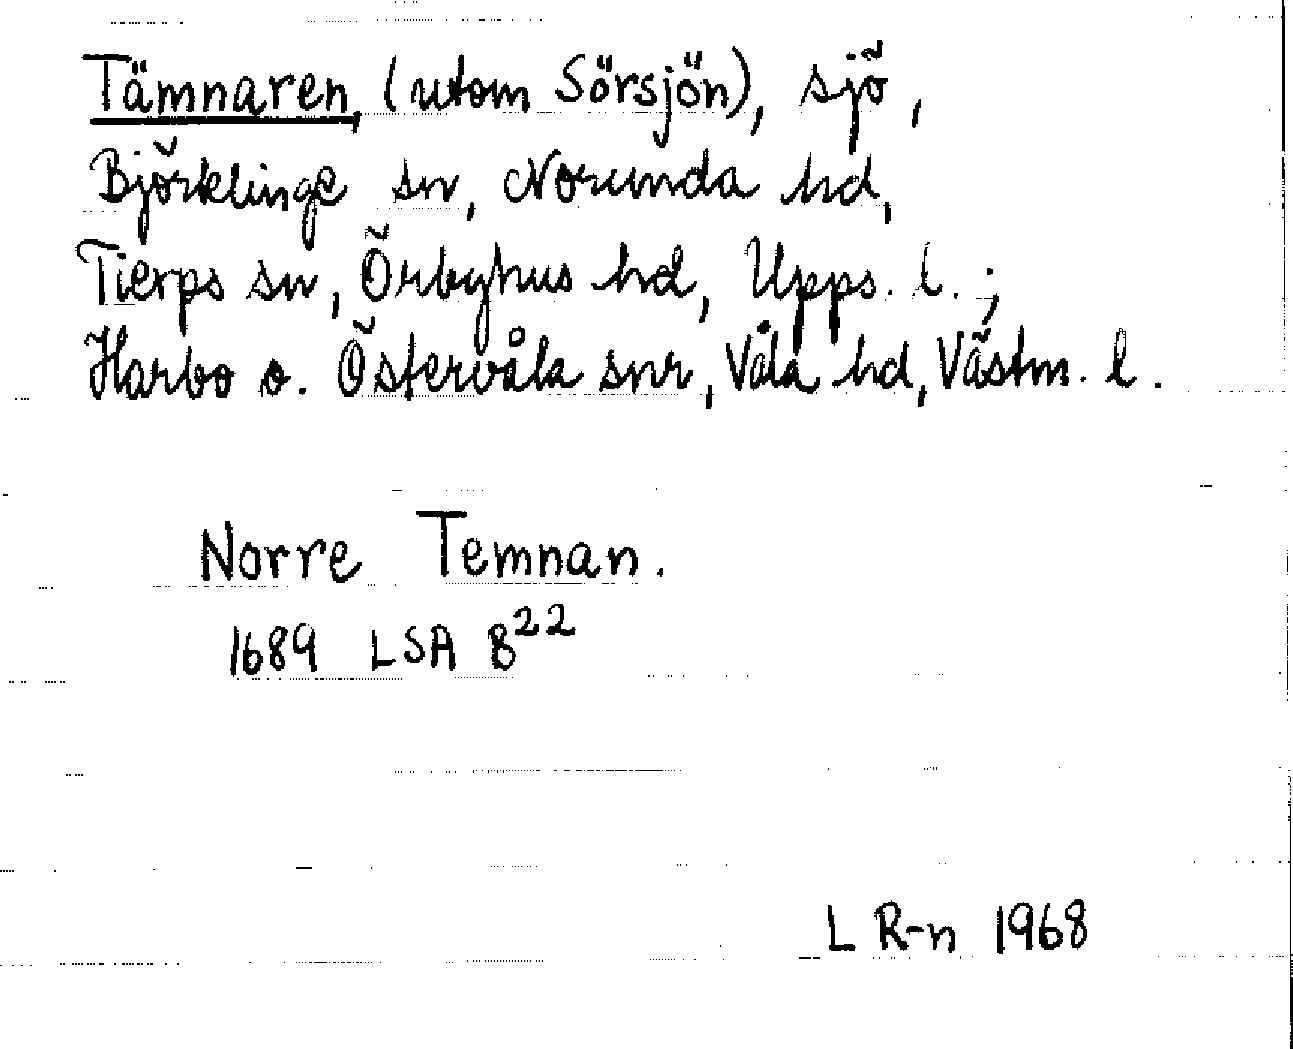 Tämnaren, (utom Sörsjön), sjö,
Björklinge sn, Norunda hd,
Tierps sn, Örbyhus hd, Upps. l.;
Harbo o. Östervåla snr, Våla hd, Västm. l.
Norre Temnan.
1689 LSA B²²
L R-n 1968